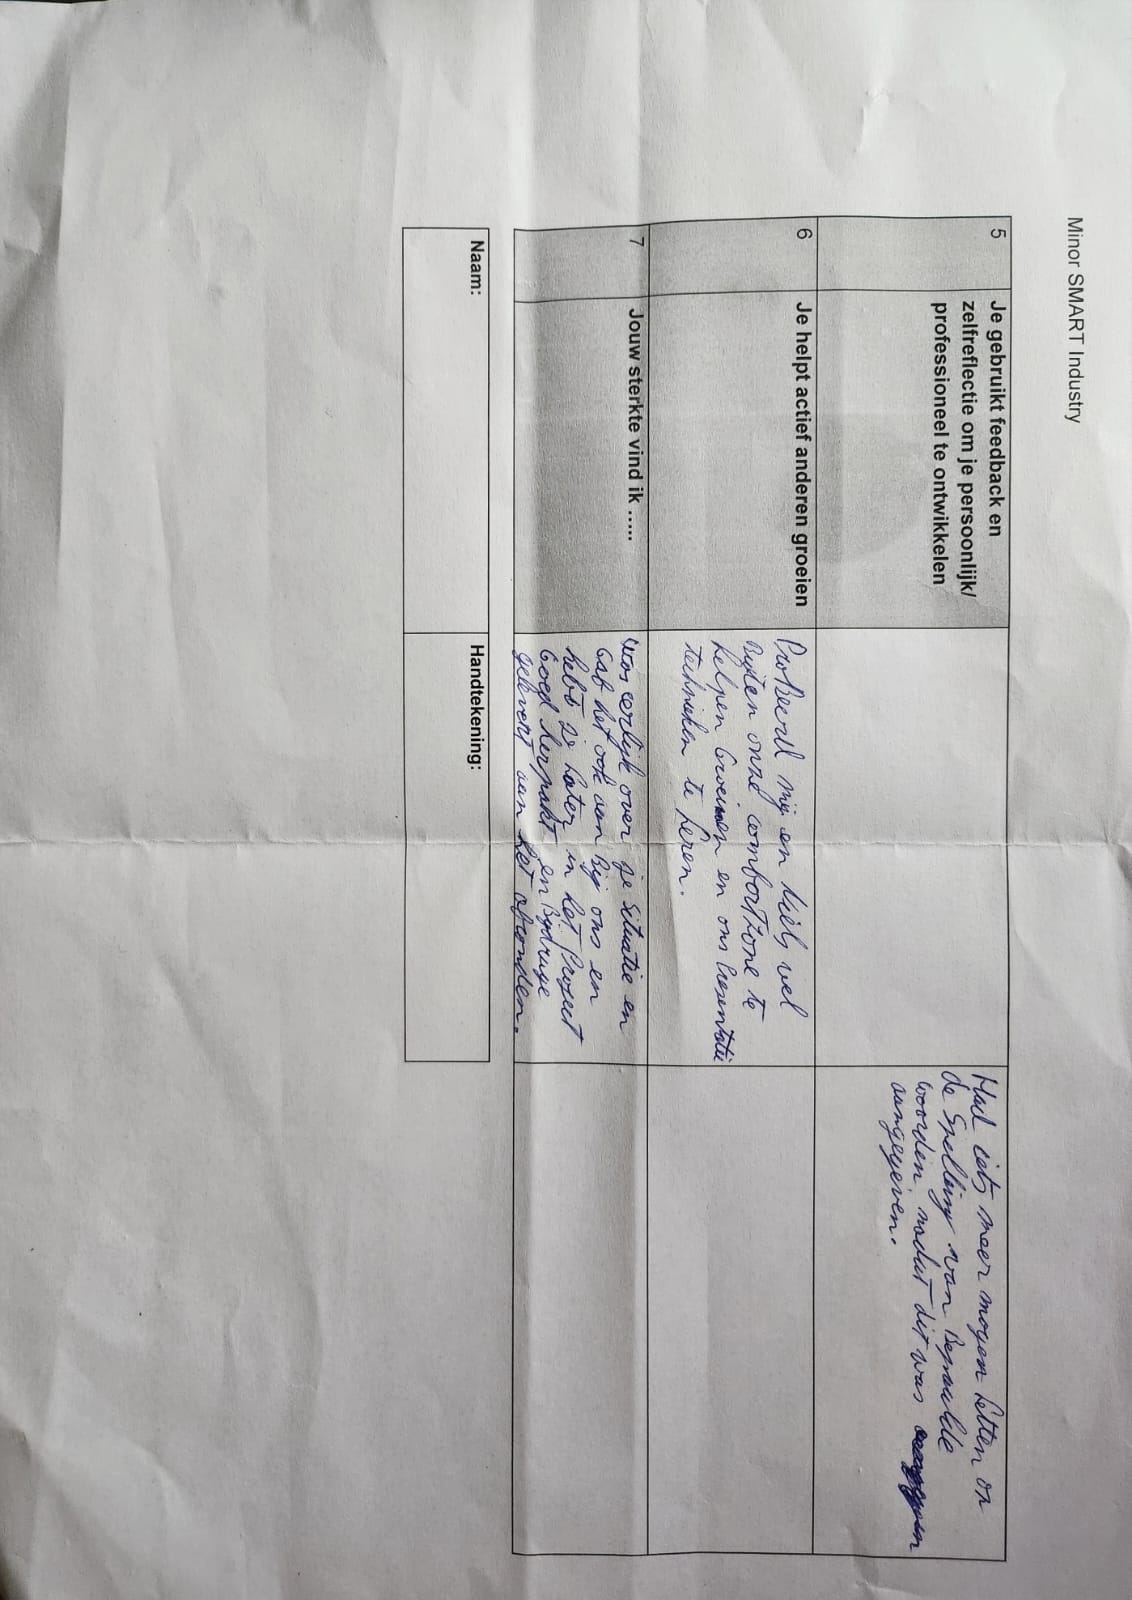 Minor SMART Industry
5
Je gebruikt feedback en
zelfreflectie om je persoonlijk/
professioneel te ontwikkelen
Had iets meer mogen Letten op
de Spelling van Bepaalde
woorden nadat dit was
aangegeven.
6
Je helpt actief anderen groeien
ProBeerd mij en Niels wel
Buiten onze comfortzone te
helpen Groeien en ons Presentatie
technieken te Leren.
7
Jouw sterkte vind ik …..
was eerlijk over je Situatie en
Gaf het ook aan Bij ons en
hebt je Later in het Project
Goed herpakt en Bijdrage
gelevert aan het afronden.
Naam:
Handtekening: